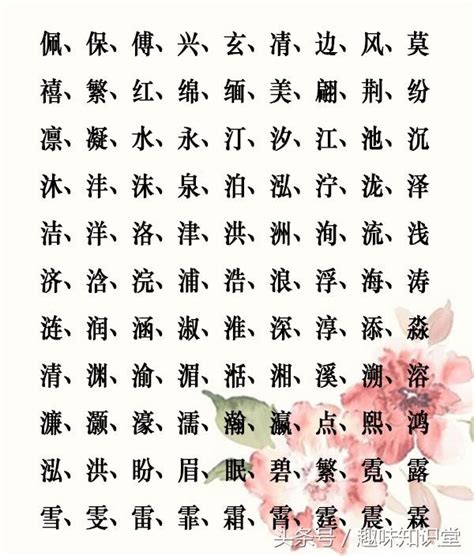 佩、保、傅、兴、玄、凊、边、风、莫
禧、繁、红、绵、缅、美、翩、荆、纷
凛、凝、水、永、汀、汐、江、池、沉
沐、沣、沫、泉、泊、泓、泞、泷、泽
洁、洋、洛、津、洪、洲、洵、流、浅
济、浛、浣、浦、浩、浪、浮、海、涛
涟、润、涵、淑、淮、深、淳、添、淼
清、渊、渝、湄、湉、湘、溪、溯、溶
濂、灏、濠、濡、瀚、瀛、点、熙、鸿
泓、洪、盼、眉、眠、碧、繁、霓、露
雪、雯、雷、霏、霜、霄、霆、震、霖
头条号/趣味知识堂